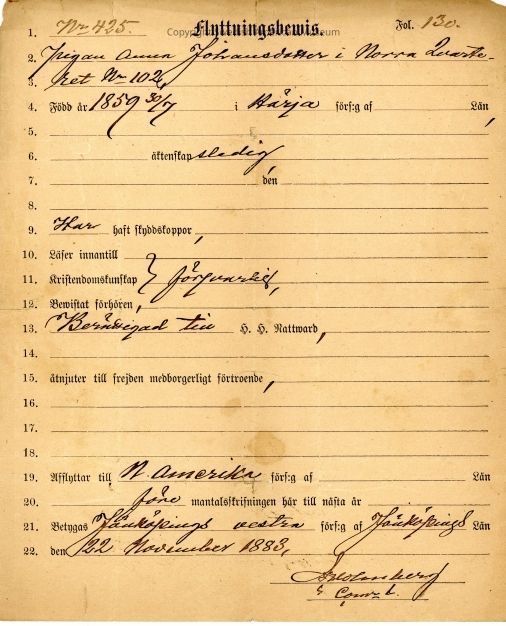 1. No 425. Flyttningsbewis. Fol. 130.
2. Pigan Anna Johansdotter i Norra Qvarte-
3. ret No 102,
4. Född år 1859 30/7 i Härja förs:g af Län,
5.
6. äktenskap ledig,
7. den
8.
9. Har haft skyddskoppor,
10. Läser innantill
11. Kristendomskunskap
12. Bewistat förhören,
13. Berättigad till H. H. Nattward,
14.
15. åtnjuter till frejden medborgerligt förtroende,
16.
17.
18.
19. Afflyttar till N. Amerika förs:g af Län
20. före mantalsskrifningen här till näста år
21. Betygas Jönköpings vestra förs:g af Jönköpings Län
22. den 22 November 1883.
Holmberg